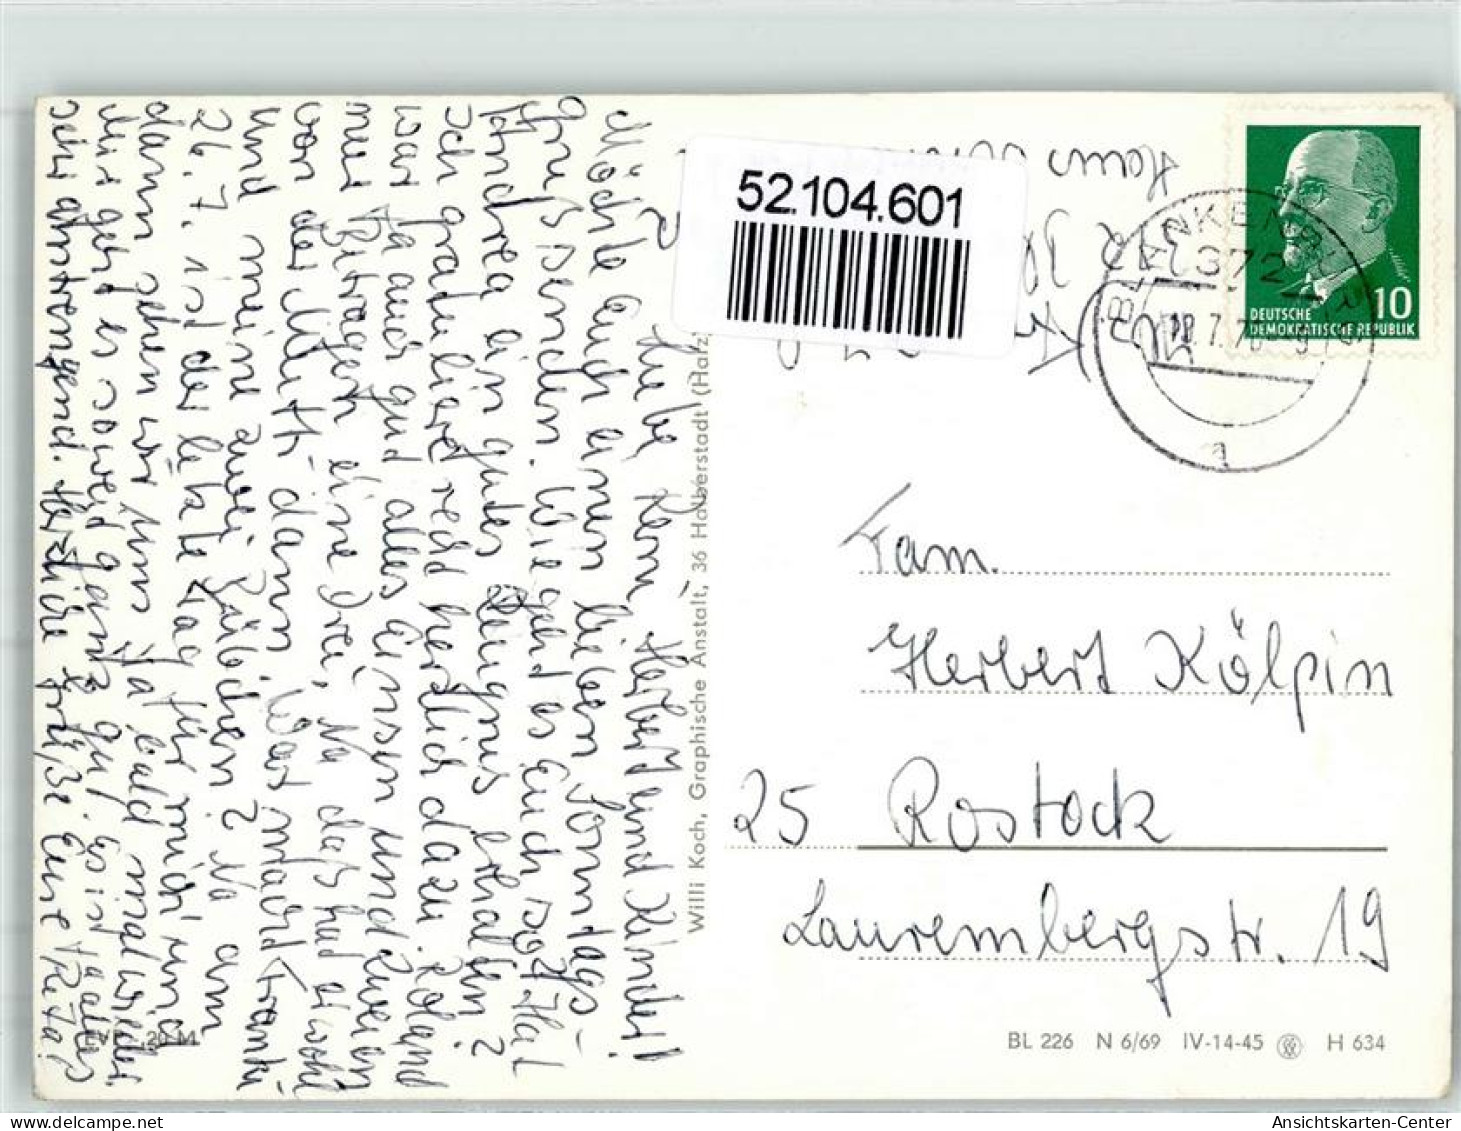 Liebe Rena, Herbert und Kinder!
Möchte Euch einen lieben Sonntags-
gruß senden. Wie geht es Euch so? Hat
Andrea ein gutes Zeugnis erhalten?
Ich gratuliere recht herzlich dazu. Roland
war ja auch gut alles Einsen und Zweien
nur Betragen eine Drei, Na das hat er wohl
von der Mutti dann. Was macht Franki
und meine zwei Bübchen? Na am
26. 7. ist der letzte Tag für mich und
dann sehen wir uns ja bald mal wieder.
Mir geht es soweit ganz gut. Es ist alles
sehr anstrengend. Herzliche Grüße Eure Rita!
EVP ,20 M
Willi Koch, Graphische Anstalt, 36 Halberstadt (Harz
52.104.601
Haus
372
BLANKENBURG
372
18.7.70
a
DEUTSCHE
DEMOKRATISCHE REPUBLIK
10
Fam.
Herbert Kölpin
25 Rostock
Laurembergstr. 19
BL 226 N 6/69 IV-14-45 H 634
Ansichtskarten-Center